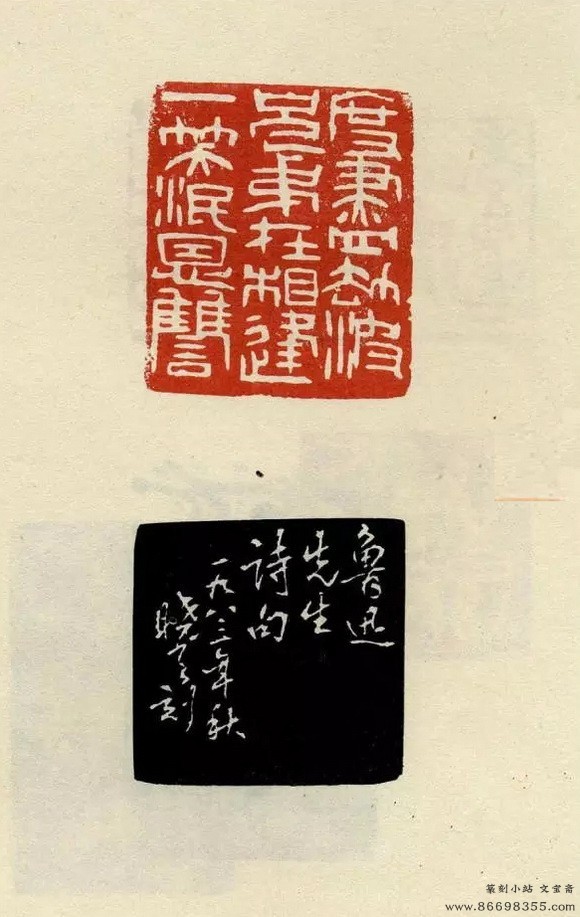 度盡劫波
兄弟在相逢
一笑泯恩讎
魯迅
先生
詩句
一九八三年秋
刻
篆刻小站 文宝斋
www.86698355.com